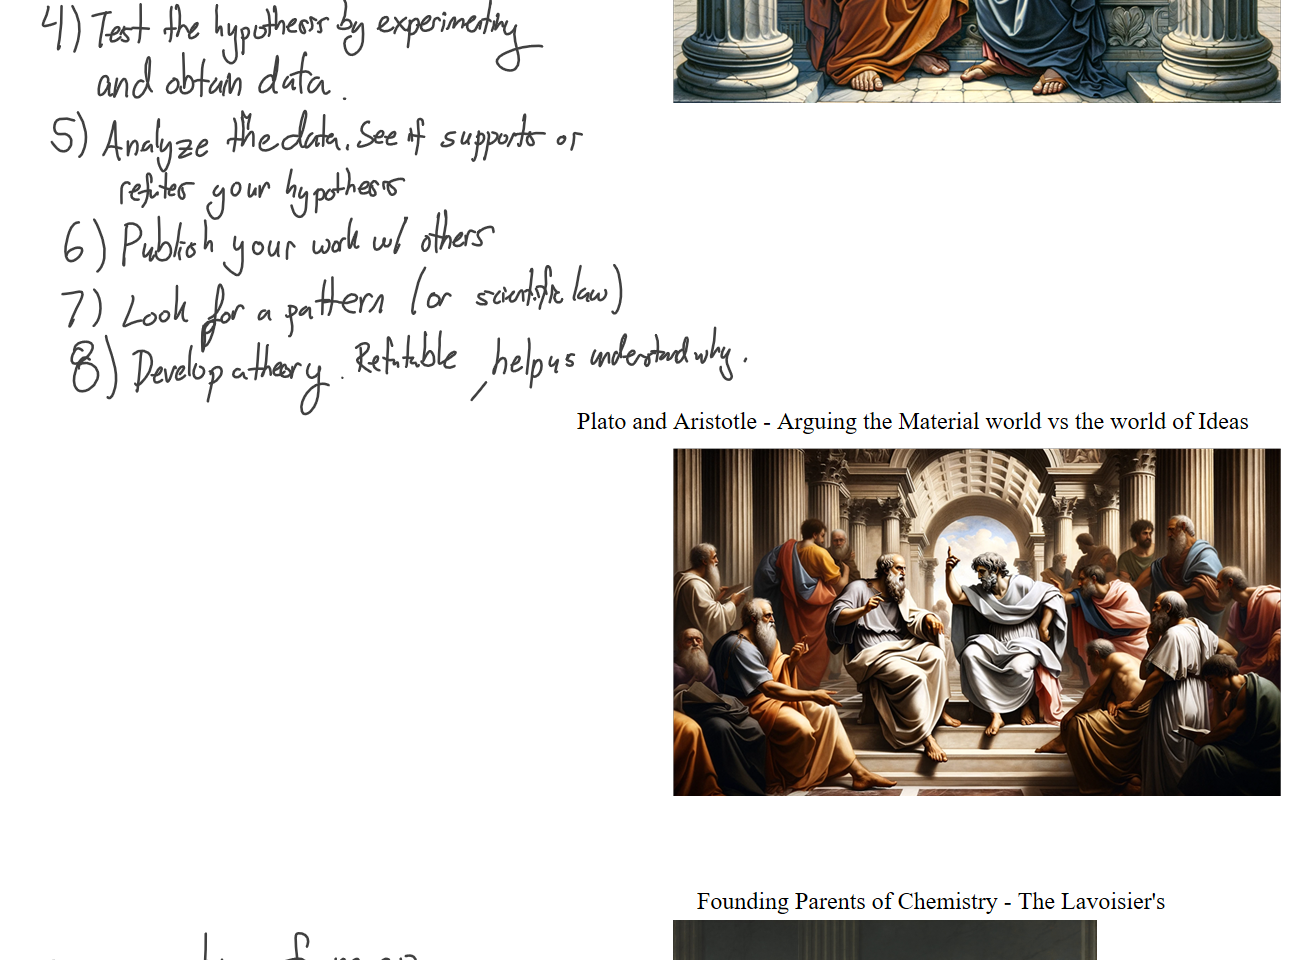 4) Test the hypothesis by experimenting
and obtain data.
5) Analyze the data. See if supports or
refutes your hypothesis
6) Publish your work w/ others
7) Look for a pattern (or scientific law)
8) Develop a theory. Refutable, helps us understand why.
Plato and Aristotle - Arguing the Material world vs the world of Ideas
Founding Parents of Chemistry - The Lavoisier's